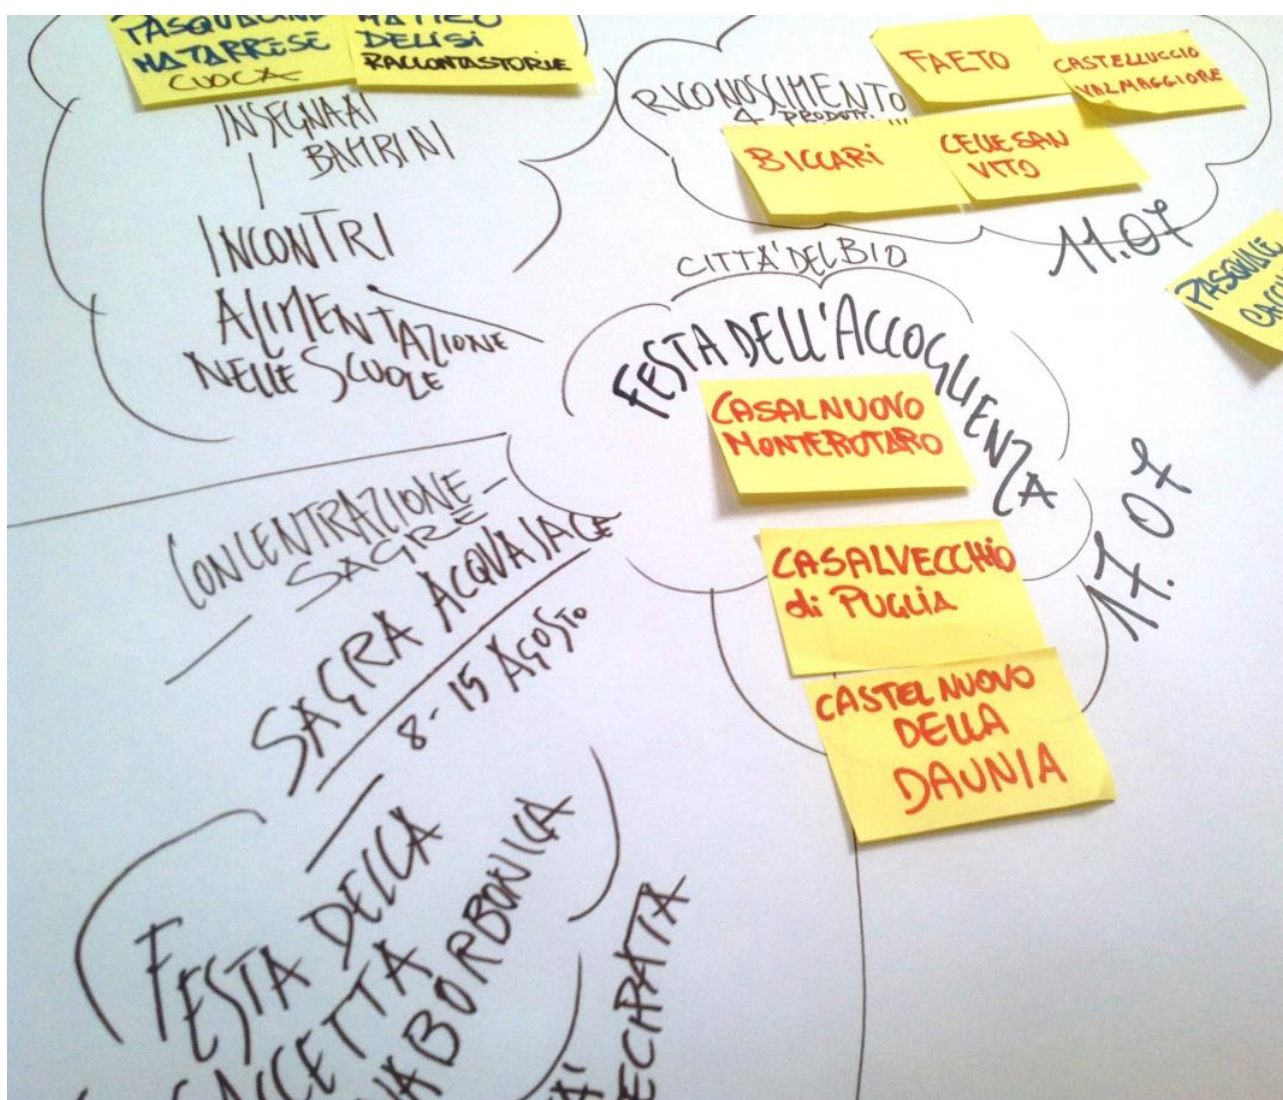 MATARRESE
CUOCA
DELISI
RACCONTASTORIE
INSEGNA AI
BAMBINI
INCONTRI
ALIMENTAZIONE
NELLE SCUOLE
RICONOSCIMENTO
4 PRODOTTI...
FAETO
CASTELLUCCIO
VALMAGGIORE
BICCARI
CELLE SAN
VITO
11.07
PASQUALE
CITTA' DEL BIO
FESTA DELL'ACCOGLIENZA
CASALNUOVO
MONTEROTARO
CASALVECCHIO
di PUGLIA
CASTELNUOVO
DELLA
DAUNIA
17.07
CONCENTRAZIONE -
SAGRE
SAGRA ACQUASALE
8-15 AGOSTO
FESTA DELLA
BORBONICA